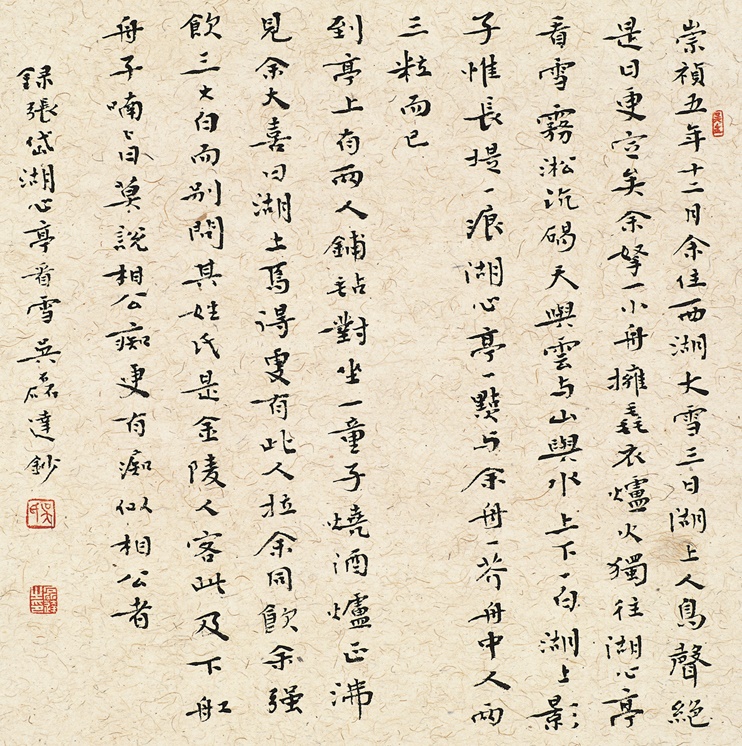 崇禎五年十二月余住西湖大雪三日湖上人鳥聲絕
是日更定矣余拏一小舟擁毳衣爐火獨往湖心亭
看雪霧淞沆碭天與雲与山與水上下一白湖上影
子惟長堤一痕湖心亭一點与余舟一芥舟中人兩
三粒而已
到亭上有兩人鋪毡對坐一童子燒酒爐正沸
見余大喜曰湖上焉得更有此人拉余同飲余强
飲三大白而別問其姓氏是金陵人客此及下舡
舟子喃々曰莫說相公痴更有痴似相公者
錄張岱湖心亭看雪吳磊達鈔